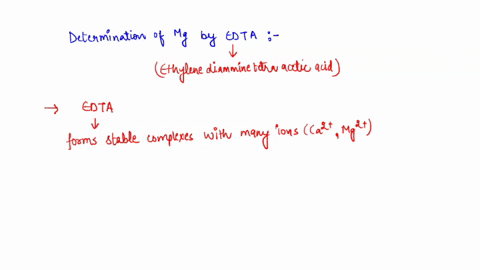 Determination of Mg by EDTA :-
↓
(Ethylene diammine tetra acetic acid)
→ EDTA
↓
forms stable complexes with many ions (Ca2+, Mg2+)